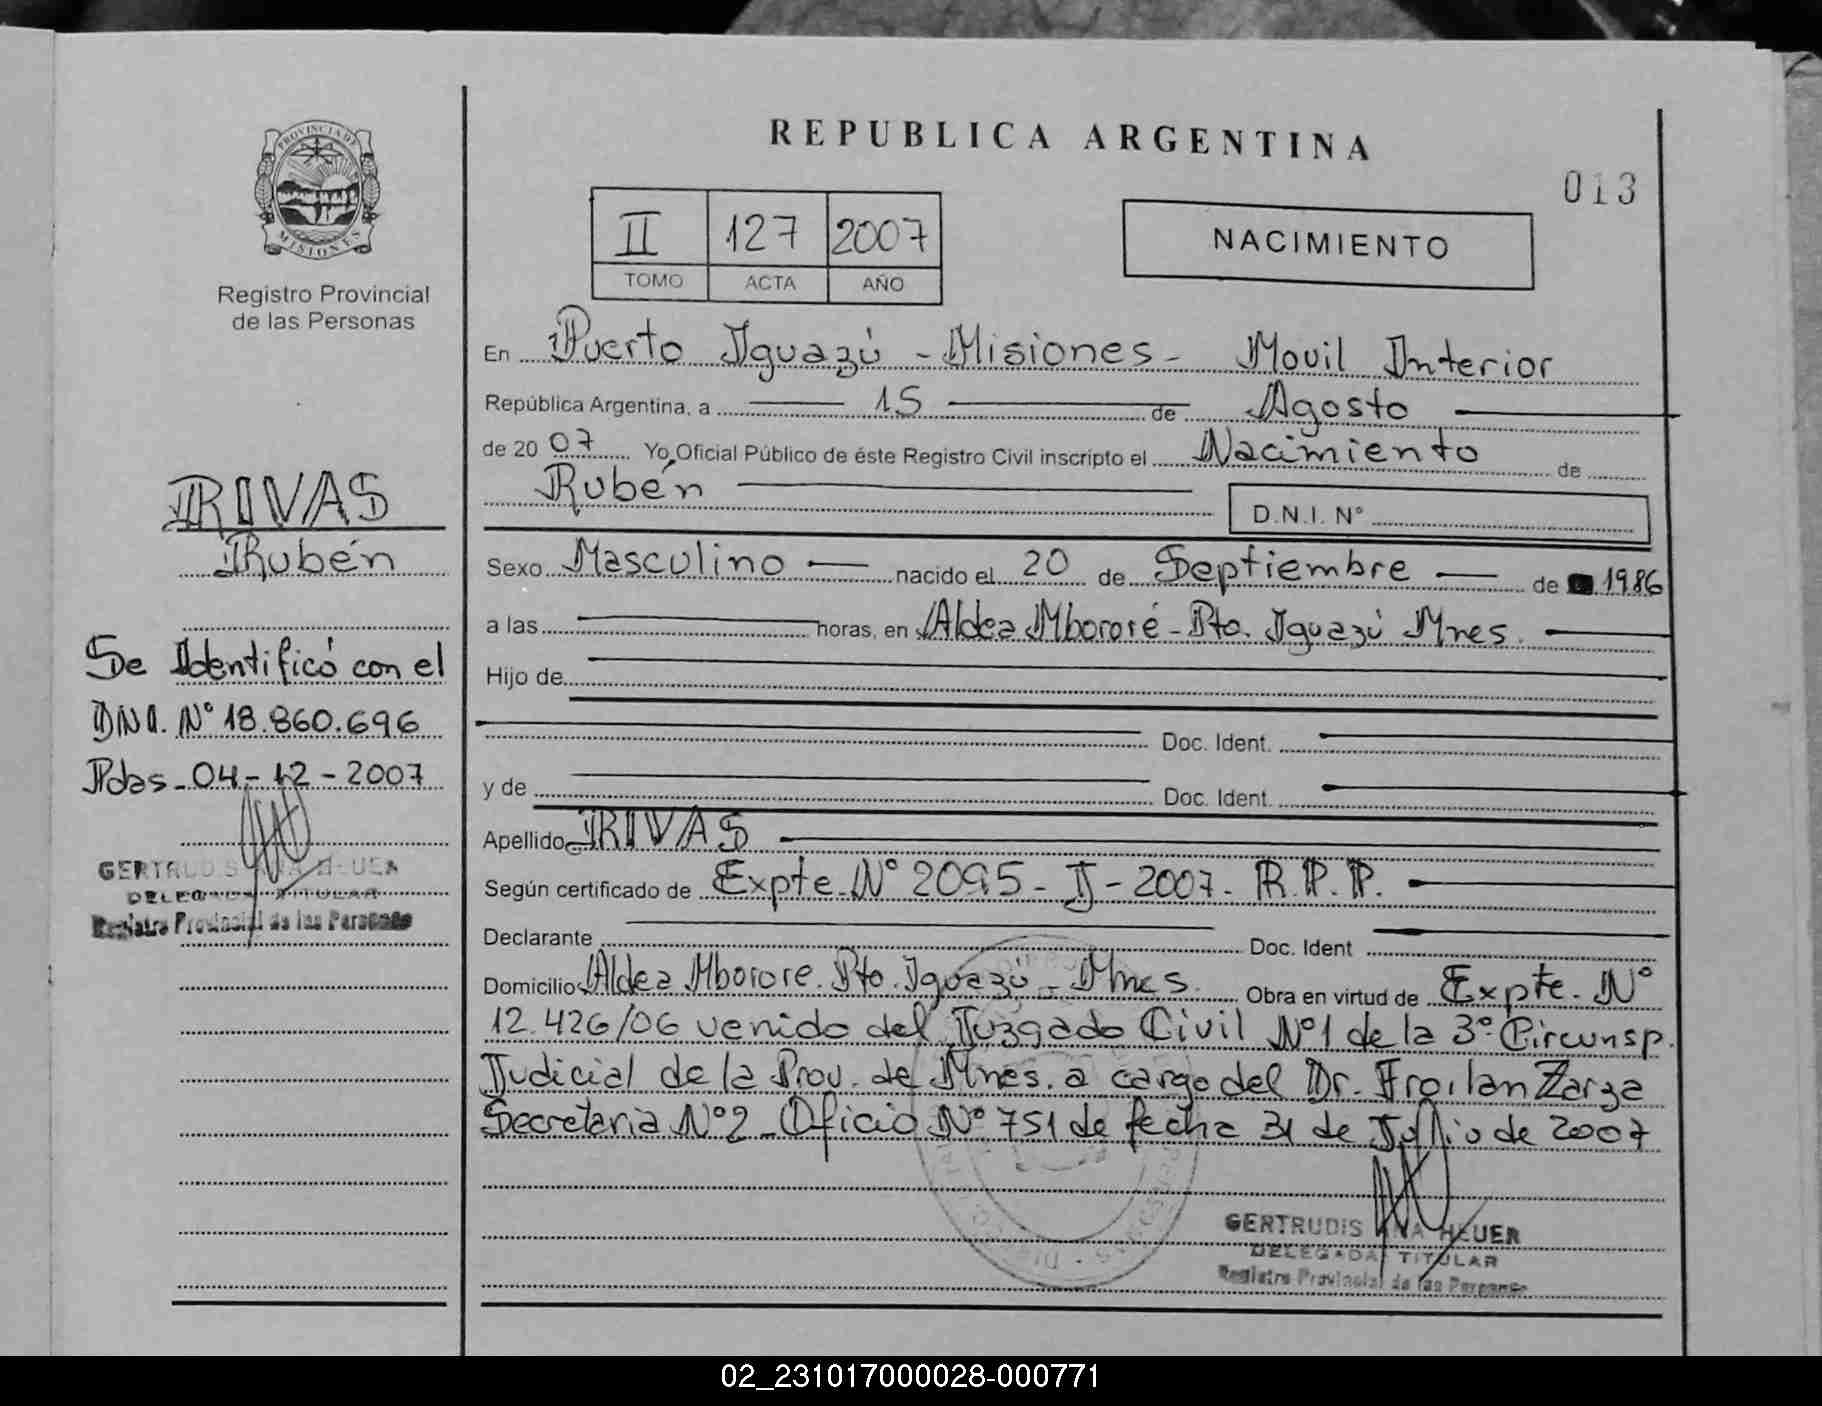 REPUBLICA ARGENTINA
013
II 127 2007
TOMO ACTA AÑO
NACIMIENTO
PROVINCIA DE
MISIONES
Registro Provincial
de las Personas
RIVAS
Rubén
Se Identificó con el
DNI. Nº 18.860.696
Pdas - 04 - 12 - 2007
GERTRUDIS ANA HEUER
DELEGADA TITULAR
Registro Provincial de las Personas
En Puerto Iguazú - Misiones - Movil Interior
República Argentina, a 15 de Agosto
de 2007 Yo, Oficial Público de éste Registro Civil inscripto el Nacimiento de
Rubén
D.N.I. Nº
Sexo Masculino nacido el 20 de Septiembre de 1986
a las horas, en Aldea Mbororé - Pto. Iguazú Mnes.
Hijo de
Doc. Ident.
y de Doc. Ident.
Apellido RIVAS
Según certificado de Expte. Nº 2095 - I - 2007 - R.P.P.
Declarante Doc. Ident
Domicilio Aldea Mborore. Pto. Iguazú - Mnes. Obra en virtud de Expte. Nº
12.426/06 venido del Juzgado Civil Nº1 de la 3º Circunsp.
Judicial de la Prov. de Mnes. a cargo del Dr. Froilan Zarza
Secretaria Nº2 - Oficio Nº 751 de fecha 31 de Julio de 2007
GERTRUDIS ANA HEUER
DELEGADA TITULAR
Registro Provincial de las Personas
02_231017000028-000771